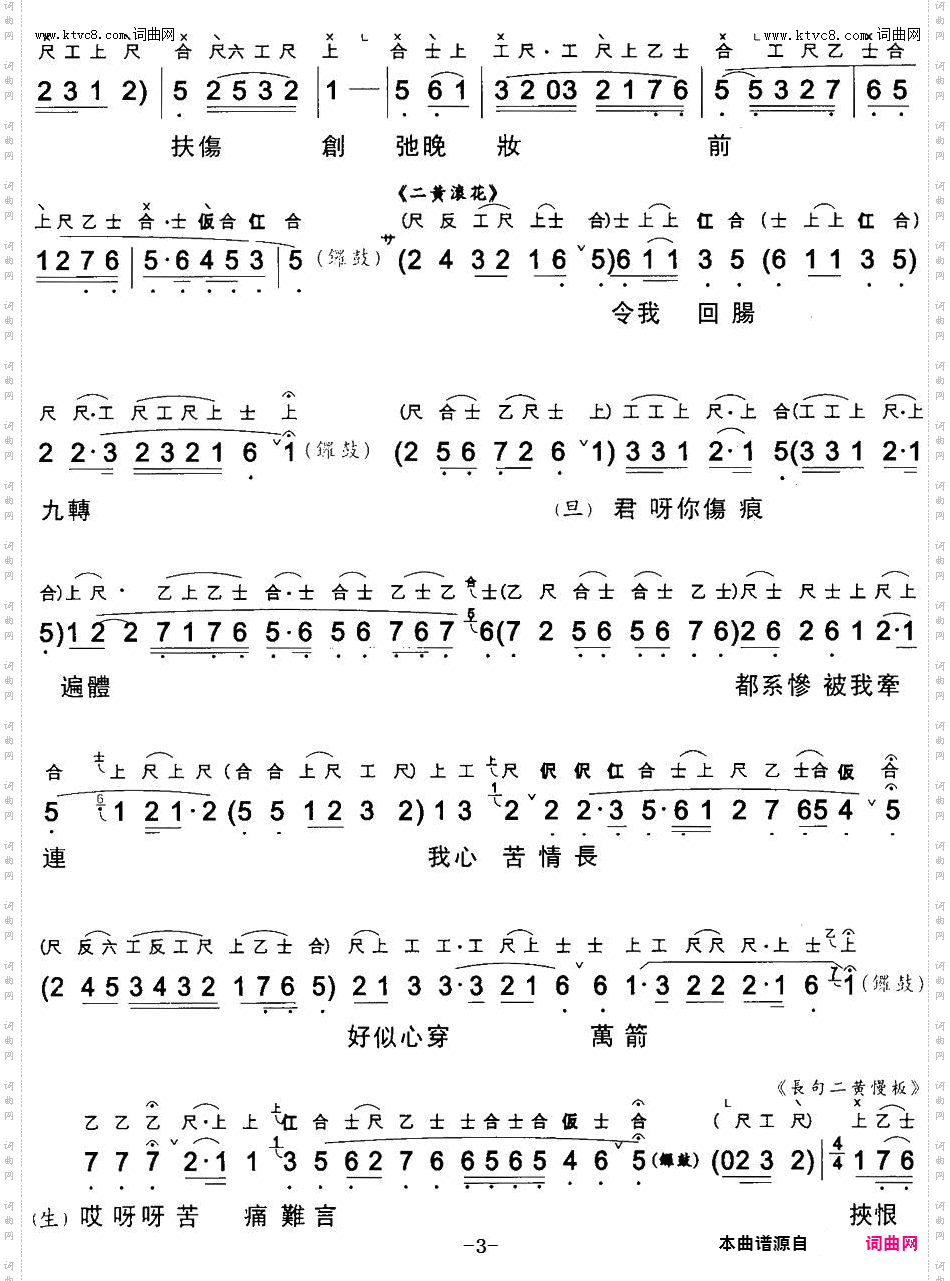 www.ktvc8.com 词曲网 www.ktvc8.com 词曲网
尺工上尺 合 尺六工尺 上 合 士上 工尺·工 尺上乙士 合 工尺乙士合
2 3 1 2) | 5 2532 | 1 — | 5 61 | 3203 2176 | 5 5327 | 65
扶傷 創 弛晚 妝 前
《二黃滾花》
上尺乙士 合·士仮合仜 合 (尺反工尺 上士 合)士上上仜合(士上上仜合)
1276 | 5·6453 | 5 (鑼鼓) サ (2 4 32 16 ˅ 5)611 3 5 (6 11 3 5)
令我 回腸
尺 尺·工 尺工尺上 士 上 (尺合士乙尺士 上)工工上 尺·上 合(工工上 尺·上
2 2·3 2321 6 ˅ 1 (鑼鼓) (2 56 72 6 ˅ 1) 331 2·1 5(331 2·1
九轉 (旦) 君 呀你傷 痕
合)上尺· 乙上乙士 合·士 合士 乙士乙 合 士(乙 尺 合士 合士 乙士)尺士 尺士上尺上
5)12 2 7176 5·6 56 767 5 6(7 2 56 56 76)26 261 2·1
遍體 都系慘 被我牽
合 士 上 尺上尺 (合 合 上尺 工 尺)上工 上 尺 伬 伬 仜 合 士上 尺 乙 士合仮 合
5 6 1 21·2 (5 5 123 2)13 1 2 ˅ 2 2·3 5·61 2 7 654 ˅ 5
連 我心 苦 情 長
(尺 反六工反工尺 上乙士 合) 尺上 工 工·工 尺上 士 士 上工 尺尺 尺·上 士 乙 上
(2 453432 176 5) 21 3 3·3 21 6 ˅ 6 1·3 22 2·1 6 7 1 (鑼鼓)
好似心穿 萬 箭
《長句二黃慢板》
乙 乙 乙 尺·上 上 上 仜 合 士尺 乙 士合士合 仮 士 合 ( 尺工 尺) 上乙士
7 7 7 ˅ 2·1 1 1 3 5 62 7 6 5656 5 4 6 ˅ 5 (鑼鼓) (023 2) | 4/4 176
(生) 哎 呀呀 苦 痛 難 言 挾恨
-3-
本曲谱源自 词曲网